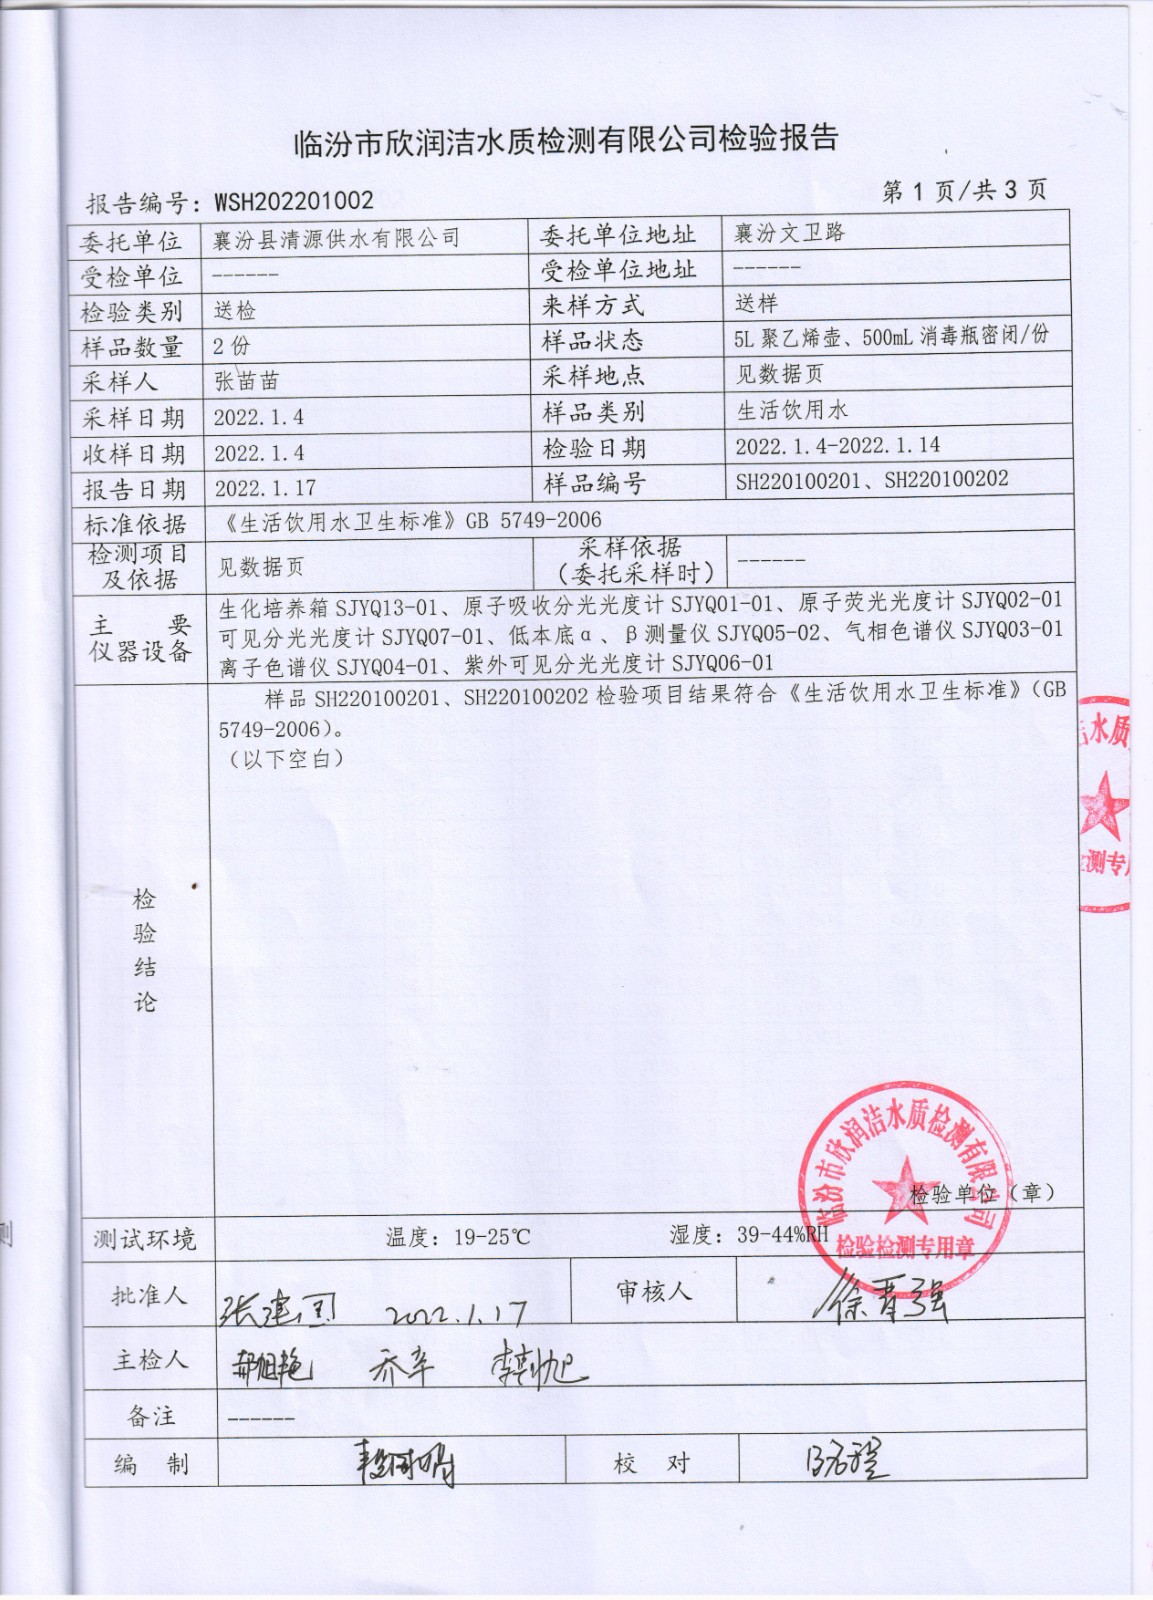 临汾市欣润洁水质检测有限公司检验报告
报告编号：WSH202201002 第 1 页/共 3 页
委托单位 襄汾县清源供水有限公司 委托单位地址 襄汾文卫路
受检单位 ------ 受检单位地址 ------
检验类别 送检 来样方式 送样
样品数量 2 份 样品状态 5L 聚乙烯壶、500mL 消毒瓶密闭/份
采样人 张苗苗 采样地点 见数据页
采样日期 2022.1.4 样品类别 生活饮用水
收样日期 2022.1.4 检验日期 2022.1.4-2022.1.14
报告日期 2022.1.17 样品编号 SH220100201、SH220100202
标准依据 《生活饮用水卫生标准》GB 5749-2006
检测项目及依据 见数据页 采样依据（委托采样时） ------
主要仪器设备 生化培养箱 SJYQ13-01、原子吸收分光光度计 SJYQ01-01、原子荧光光度计 SJYQ02-01
可见分光光度计 SJYQ07-01、低本底α、β测量仪 SJYQ05-02、气相色谱仪 SJYQ03-01
离子色谱仪 SJYQ04-01、紫外可见分光光度计 SJYQ06-01
检验结论
样品 SH220100201、SH220100202 检验项目结果符合《生活饮用水卫生标准》（GB
5749-2006）。
（以下空白）
水质
测专
临汾市欣润洁水质检测有限公司
检验检测专用章
检验单位（章）
测试环境 温度：19-25℃ 湿度：39-44%RH
批准人 张建国 2022.1.17 审核人 徐晋强
主检人 郝旭艳 乔辛
备注 ------
编 制 校 对